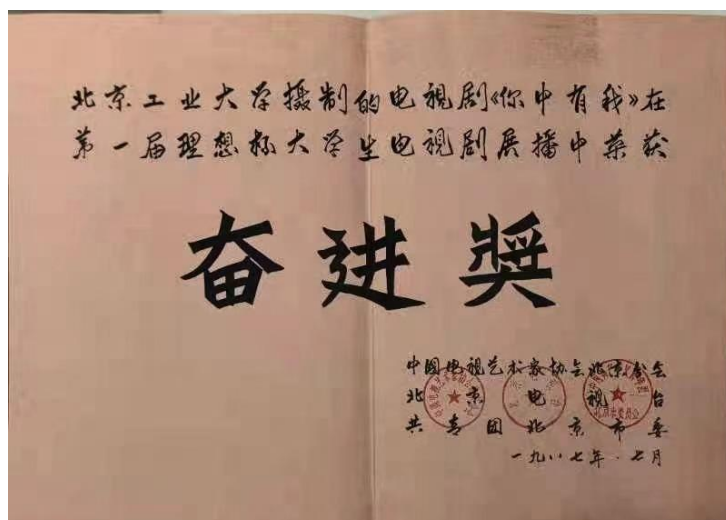 北京工业大学摄制的电视剧《你中有我》在
第一届理想杯大学生电视剧展播中荣获
奋进奖
中国电视艺术家协会北京分会
北京电视台
共青团北京市委
一九八七年·七月